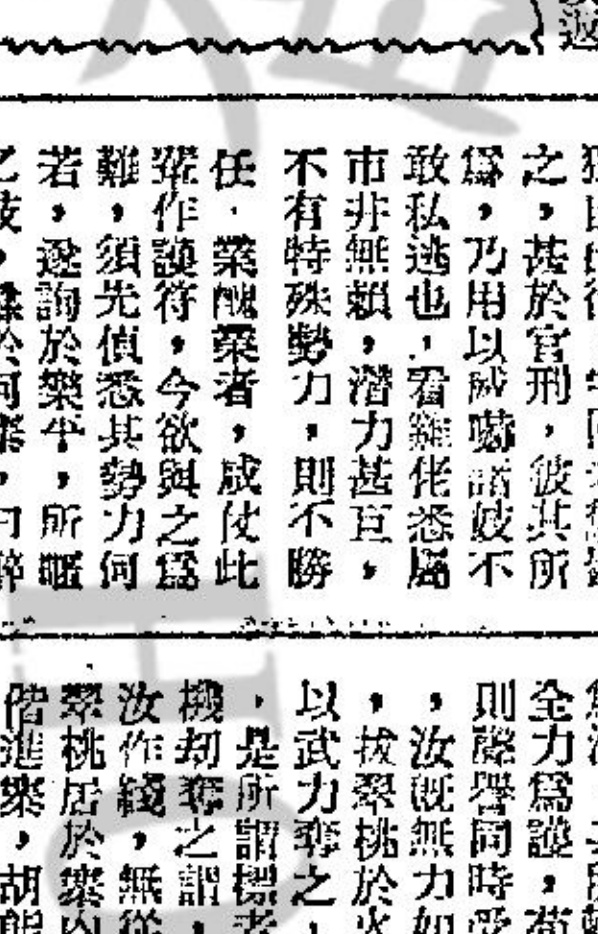 返
之，甚於官刑，彼其所
爲，乃用以威嚇諸妓不
敢私逃也，看雞佬悉屬
市井無賴，潛力甚巨，
不有特殊勢力，則不勝
任，業醜業者，咸仗此
輩作護符，今欲與之爲
難，須先偵悉其勢力何
若，遂詢於樂平，所暱
全力爲護，苟
則聲譽同時受
，汝既無力如
，拔翠桃於火
以武力奪之，
，是所謂標者
機刧奪之謂，
汝作綫，無從
翠桃居於寨內
偕進寨，胡能